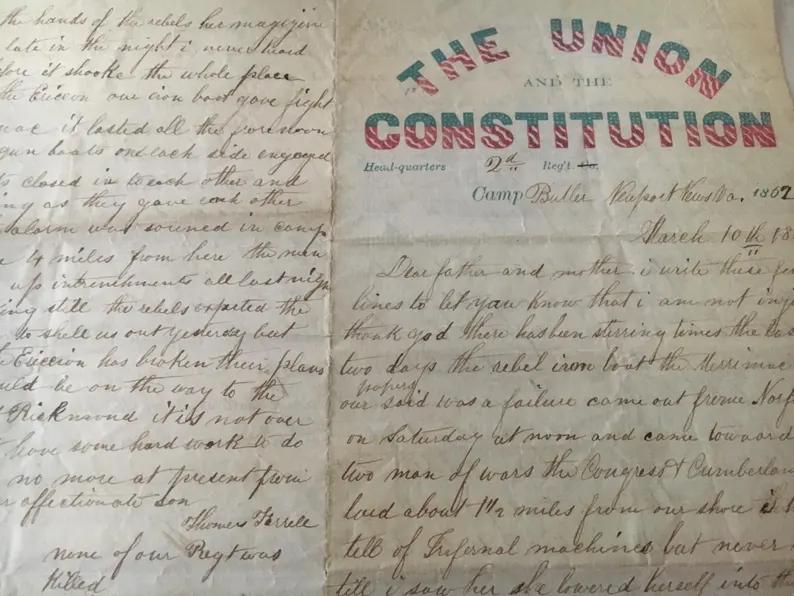 THE UNION
AND THE
CONSTITUTION
Head-quarters 2d Reg't. Co.
Camp Butler Newport News Va. 1862
March 10th 18
Dear father and mother i write these few
lines to let you know that i am not inj
thank god there has been stirring times the las
two days the rebel iron boat the Merrimac
papers
our said was a failure came out frome Norf
on Saturday at noon and came toward
two man of wars the Congress & Cumberlan
laid about 1 1/2 miles from our shore i
tell of Infernal machines but never
till i saw her she lowered herself into th
the hands of the rebels her magizine
late in the night i never heard
fore it shooke the whole place
the Ericson our iron boat gave fight
mac it lasted all the forenoon
gun boats on each side engaged
s closed in to each other and
ing as they gave each other
alarm was souned in camp
4 miles from here the men
up intrenchments all last nigh
ing still the rebels expected the
to shell us out yesterday but
Ericcion has broken their plans
uld be on the way to the
Rickmond it is not over
have some hard work to do
no more at present from
r affectionate son
Thomas Farrell
none of our Regt was
Killed